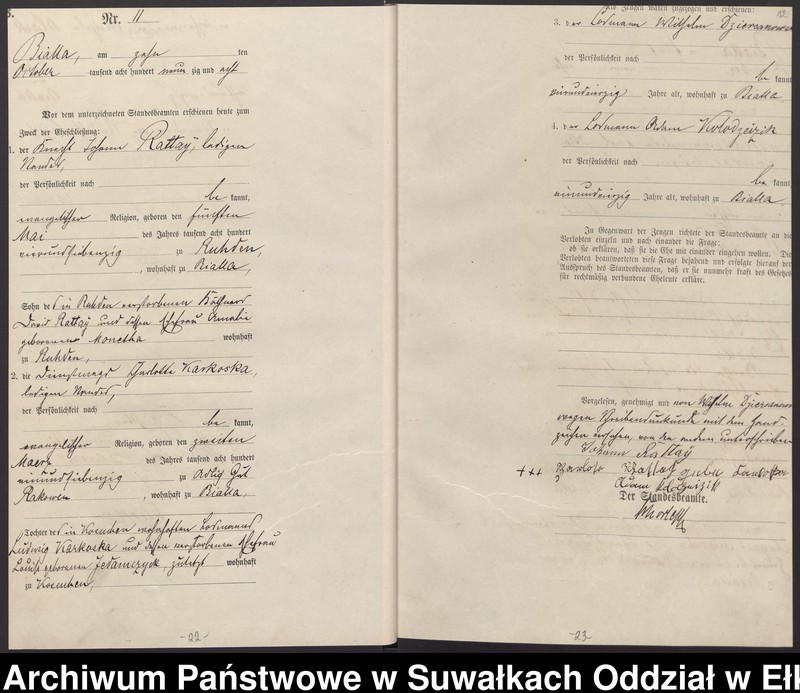 Nr. 11
Bialla, am zehn ten
October tausend acht hundert neun zig und acht
Vor dem unterzeichneten Standesbeamten erschienen heute zum
Zweck der Eheschließung:
1. der Knecht Johann Rattay, ledigen
Standes,
der Persönlichkeit nach
be kannt,
evangelischer Religion, geboren den fünften
Mai des Jahres tausend acht hundert
vierundsiebenzig zu Ruhden,
, wohnhaft zu Bialla,
Sohn des in Ruhden verstorbenen Käthners
David Rattay und dessen Ehefrau Amalie
geborenen Monetha wohnhaft
zu Ruhden,
2. die Dienstmagd Charlotte Karkoska,
ledigen Standes,
der Persönlichkeit nach
be kannt,
evangelischer Religion, geboren den zweiten
Maerz des Jahres tausend acht hundert
einundsiebenzig zu Adlig Gut
Rakowen , wohnhaft zu Bialla,
Tochter des in wohnhaften Losmanns
Ludwig Karkoska und dessen verstorbenen Ehefrau
Louise geborenen Jedamczyck, zuletzt wohnhaft
zu
-22-
Als Zeugen waren zugezogen und erschienen:
12
3. der Losmann Wilhelm
der Persönlichkeit nach
be kannt
Jahre alt, wohnhaft zu Bialla
4. der Losmann Adam Kolodzeizik
der Persönlichkeit nach
be kannt
einundvierzig Jahre alt, wohnhaft zu Bialla
In Gegenwart der Zeugen richtete der Standesbeamte an die
Verlobten einzeln und nach einander die Frage:
ob sie erklären, daß sie die Ehe mit einander eingehen wollen. Die
Verlobten beantworteten diese Frage bejahend und erfolgte hierauf der
Ausspruch des Standesbeamten, daß er sie nunmehr kraft des Gesetzes
für rechtmäßig verbundene Eheleute erkläre.
Vorgelesen, genehmigt und von Wilhelm
wegen Schreibensunkunde mit dem Hand-
zeichen versehen, von den andern unterschrieben
Johann Rattay
+++ Rattay
Adam
Der Standesbeamte.
-23-
Archiwum Państwowe w Suwałkach Oddział w Ełk